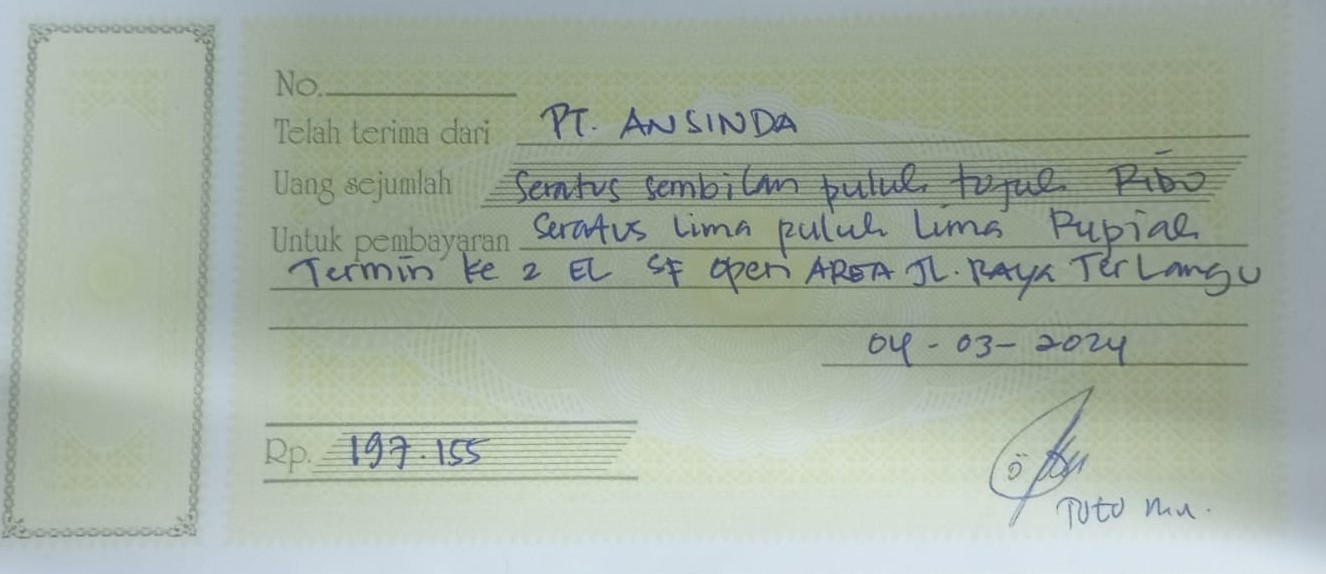 No.
Telah terima dari PT. ANSINDA
Uang sejumlah Seratus sembilan puluh tujuh Ribu
Untuk pembayaran Seratus Lima puluh Lima Rupiah
Termin ke 2 EL SF open AREA JL. RAYA TerLangu
04 - 03 - 2024
Rp. 197.155
Toto